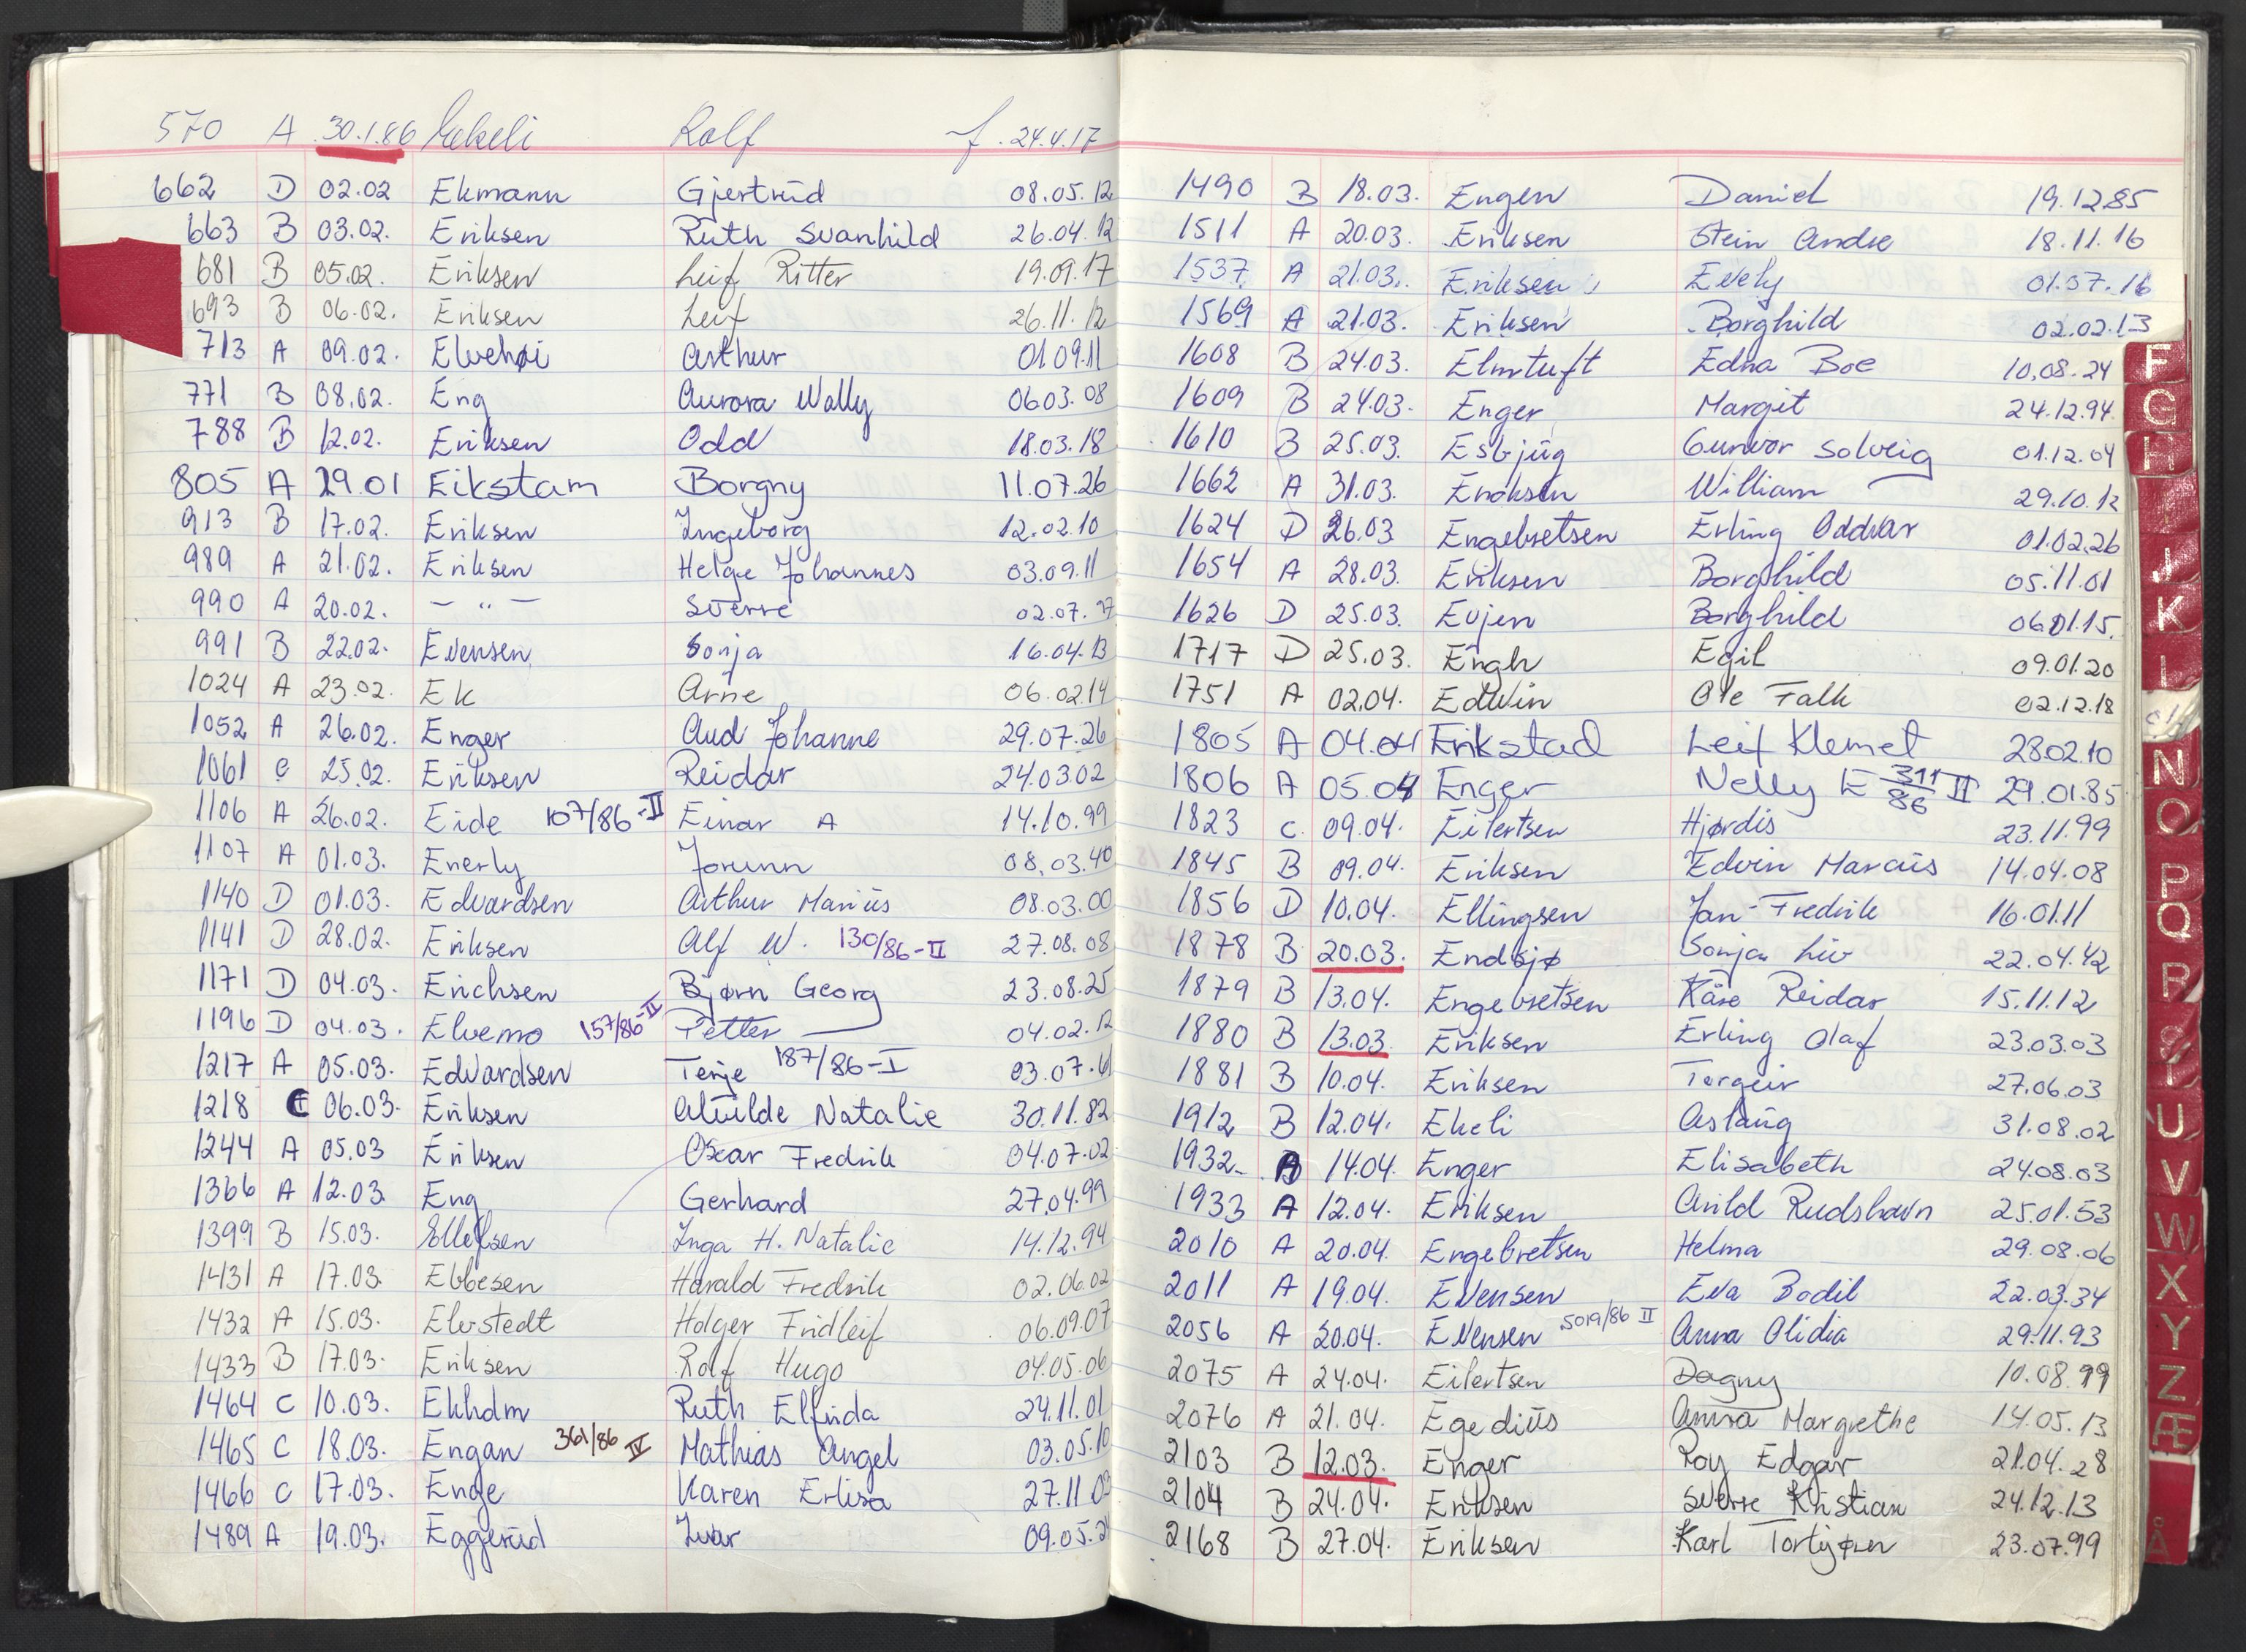 570 A 30.1.86 Ekeli Rolf f. 24.4.17
662 D 02.02 Ekmann Gjertrud 08.05.12
663 B 03.02. Eriksen Ruth Svanhild 26.04.12
681 B 05.02. Eriksen Leif Ritter 19.09.17
693 B 06.02. Eriksen Leif 26.11.12
713 A 09.02. Elvehøi Arthur 01.09.11
771 B 08.02. Eng Aurora Wally 06.03.08
788 B 12.02. Eriksen Odd 18.03.18
805 A 29.01 Eikstam Borgny 11.07.26
913 B 17.02. Eriksen Ingeborg 12.02.10
989 A 21.02. Eriksen Helge Johannes 03.09.11
990 A 20.02. — " — Sverre 02.07.27
991 B 22.02. Evensen Sonja 16.04.13
1024 A 23.02. Ek Arne 06.02.14
1052 A 26.02. Enger Aud Johanne 29.07.26
1061 C 25.02. Eriksen Reidar 24.03.02
1106 A 26.02. Eide 107/86-II Einar A 14.10.99
1107 A 01.03. Enerly Jorunn 08.03.40
1140 D 01.03. Edvardsen Arthur Marius 08.03.00
1141 D 28.02. Eriksen Alf W. 130/86-II 27.08.08
1171 D 04.03. Erichsen Bjørn Georg 23.08.25
1196 D 04.03. Elvemo 157/86-II Petter 04.02.12
1217 A 05.03. Edvardsen Terje 187/86-I 03.07.41
1218 C 06.03. Eriksen Alvilde Natalie 30.11.82
1244 A 05.03 Eriksen Oscar Fredrik 04.07.02
1366 A 12.03. Eng Gerhard 27.04.99
1399 B 15.03. Ellefsen Inga H. Natalie 14.12.94
1431 A 17.03. Ebbesen Harald Fredrik 02.06.02
1432 A 15.03. Elvstedt Holger Fridleif 06.09.07
1433 B 17.03. Eriksen Rolf Hugo 04.05.06
1464 C 10.03. Ekholm Ruth Elfrida 24.11.01
1465 C 18.03. Engan 361/86 IV Mathias Angel 03.05.10
1466 C 17.03. Enge Karen Erlisa 27.11.03
1489 A 19.03. Eggerud Ivar 09.05.2
1490 B 18.03. Engen Daniel 19.12.85
1511 A 20.03. Eriksen Stein Andre 18.11.16
1537 A 21.03. Eriksen Evely 01.07.16
1569 A 21.03. Eriksen Borghild 02.02.13
1608 B 24.03. Elmtuft Edna Boe 10.08.24
1609 B 24.03. Enger Margit 24.12.94
1610 B 25.03. Esbjug Gunvor Solveig 01.12.04
1662 A 31.03. Enoksen William 29.10.12
1624 D 26.03 Engebretsen Erling Oddvar 01.02.26
1654 A 28.03. Eriksen Borghild 05.11.01
1626 D 25.03. Evjen Borghild 06.01.15.
1717 D 25.03. Engh Egil 09.01.20
1751 A 02.04. Edwin Ole Falk 02.12.18
1805 A 04.04 Erikstad Leif Klemet 28.02.10
1806 A 05.04 Enger Nelly E 311/86 II 29.01.85
1823 C. 09.04. Eilertsen Hjørdis 23.11.99
1845 B 09.04. Eriksen Edvin Marcus 14.04.08
1856 D 10.04. Ellingsen Jan-Fredrik 16.01.11
1878 B 20.03. Endsjø Sonja Liv 22.04.42
1879 B 13.04. Engebretsen Kåre Reidar 15.11.12
1880 B 13.03 Eriksen Erling Olaf 23.03.03
1881 B 10.04. Eriksen Torgeir 27.06.03
1912 B 12.04. Ekeli Aslaug 31.08.02
1932 A 14.04. Enger Elisabeth 24.08.03
1933 A 12.04. Eriksen Arild Rudshavn 25.01.53
2010 A 20.04. Engebretsen Helma 29.08.06
2011 A 19.04. Evensen Eva Bodil 22.03.34
2056 A 20.04. Evensen 5019/86 II Anna Olidia 29.11.93
2075 A 24.04. Eilertsen Dagny 10.08.99
2076 A 21.04. Egedius Anna Margrethe 14.05.13
2103 B 12.03. Enger Roy Edgar 21.04.28
2104 B 24.04. Eriksen Sverre Kristian 24.12.13
2168 B 27.04. Eriksen Karl Torbjørn 23.07.99
F
G
H
I
J
K
L
N
O
P
Q
R
S
T
U
V
W
X
Y
Z
Æ
Å